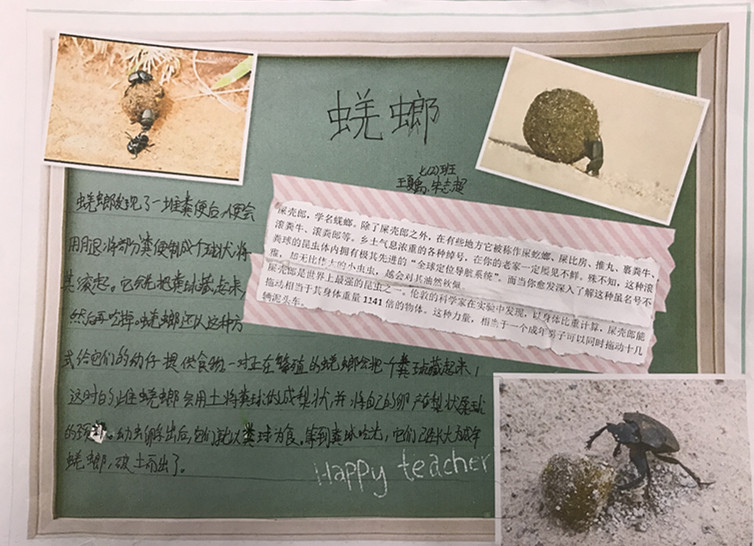 蜣螂
七(2)班
屎壳郎，学名蜣螂。除了屎壳郎之外，在有些地方它被称作屎蚵螂、屎比房、推丸、裹粪牛、
滚粪牛、滚粪郎等。乡土气息浓重的各种绰号，在你的老家一定屡见不鲜。殊不知，这种滚
粪球的昆虫体内拥有极其先进的“全球定位导航系统”。而当你愈发深入了解这种虽名号不
雅，却无比伟大的小虫虫，越会对其油然敬佩。
屎壳郎是世界上最强的昆虫之一，伦敦的科学家在实验中发现，以身体比重计算，屎壳郎能
拖动相当于其身体重量1241倍的物体。这种力量，相当于一个成年男子可以同时拖动十几
辆泥头车。
蜣螂发现了一堆粪便后，便会
用腿将部分粪便制成个球状，将
其滚起。它会先把粪球藏起来，
然后再吃掉。蜣螂还以这种方
式给它们的幼仔提供食物。一对正在繁殖的蜣螂会把一个粪球藏起来，
这时的雌蜣螂会用土将粪球做成梨状，并将自己的卵产在梨状粪球
的颈部。幼虫孵出后，它们就以粪球为食。等到粪球吃光，它们已经长大为成年
蜣螂，破土而出了。
Happy teacher